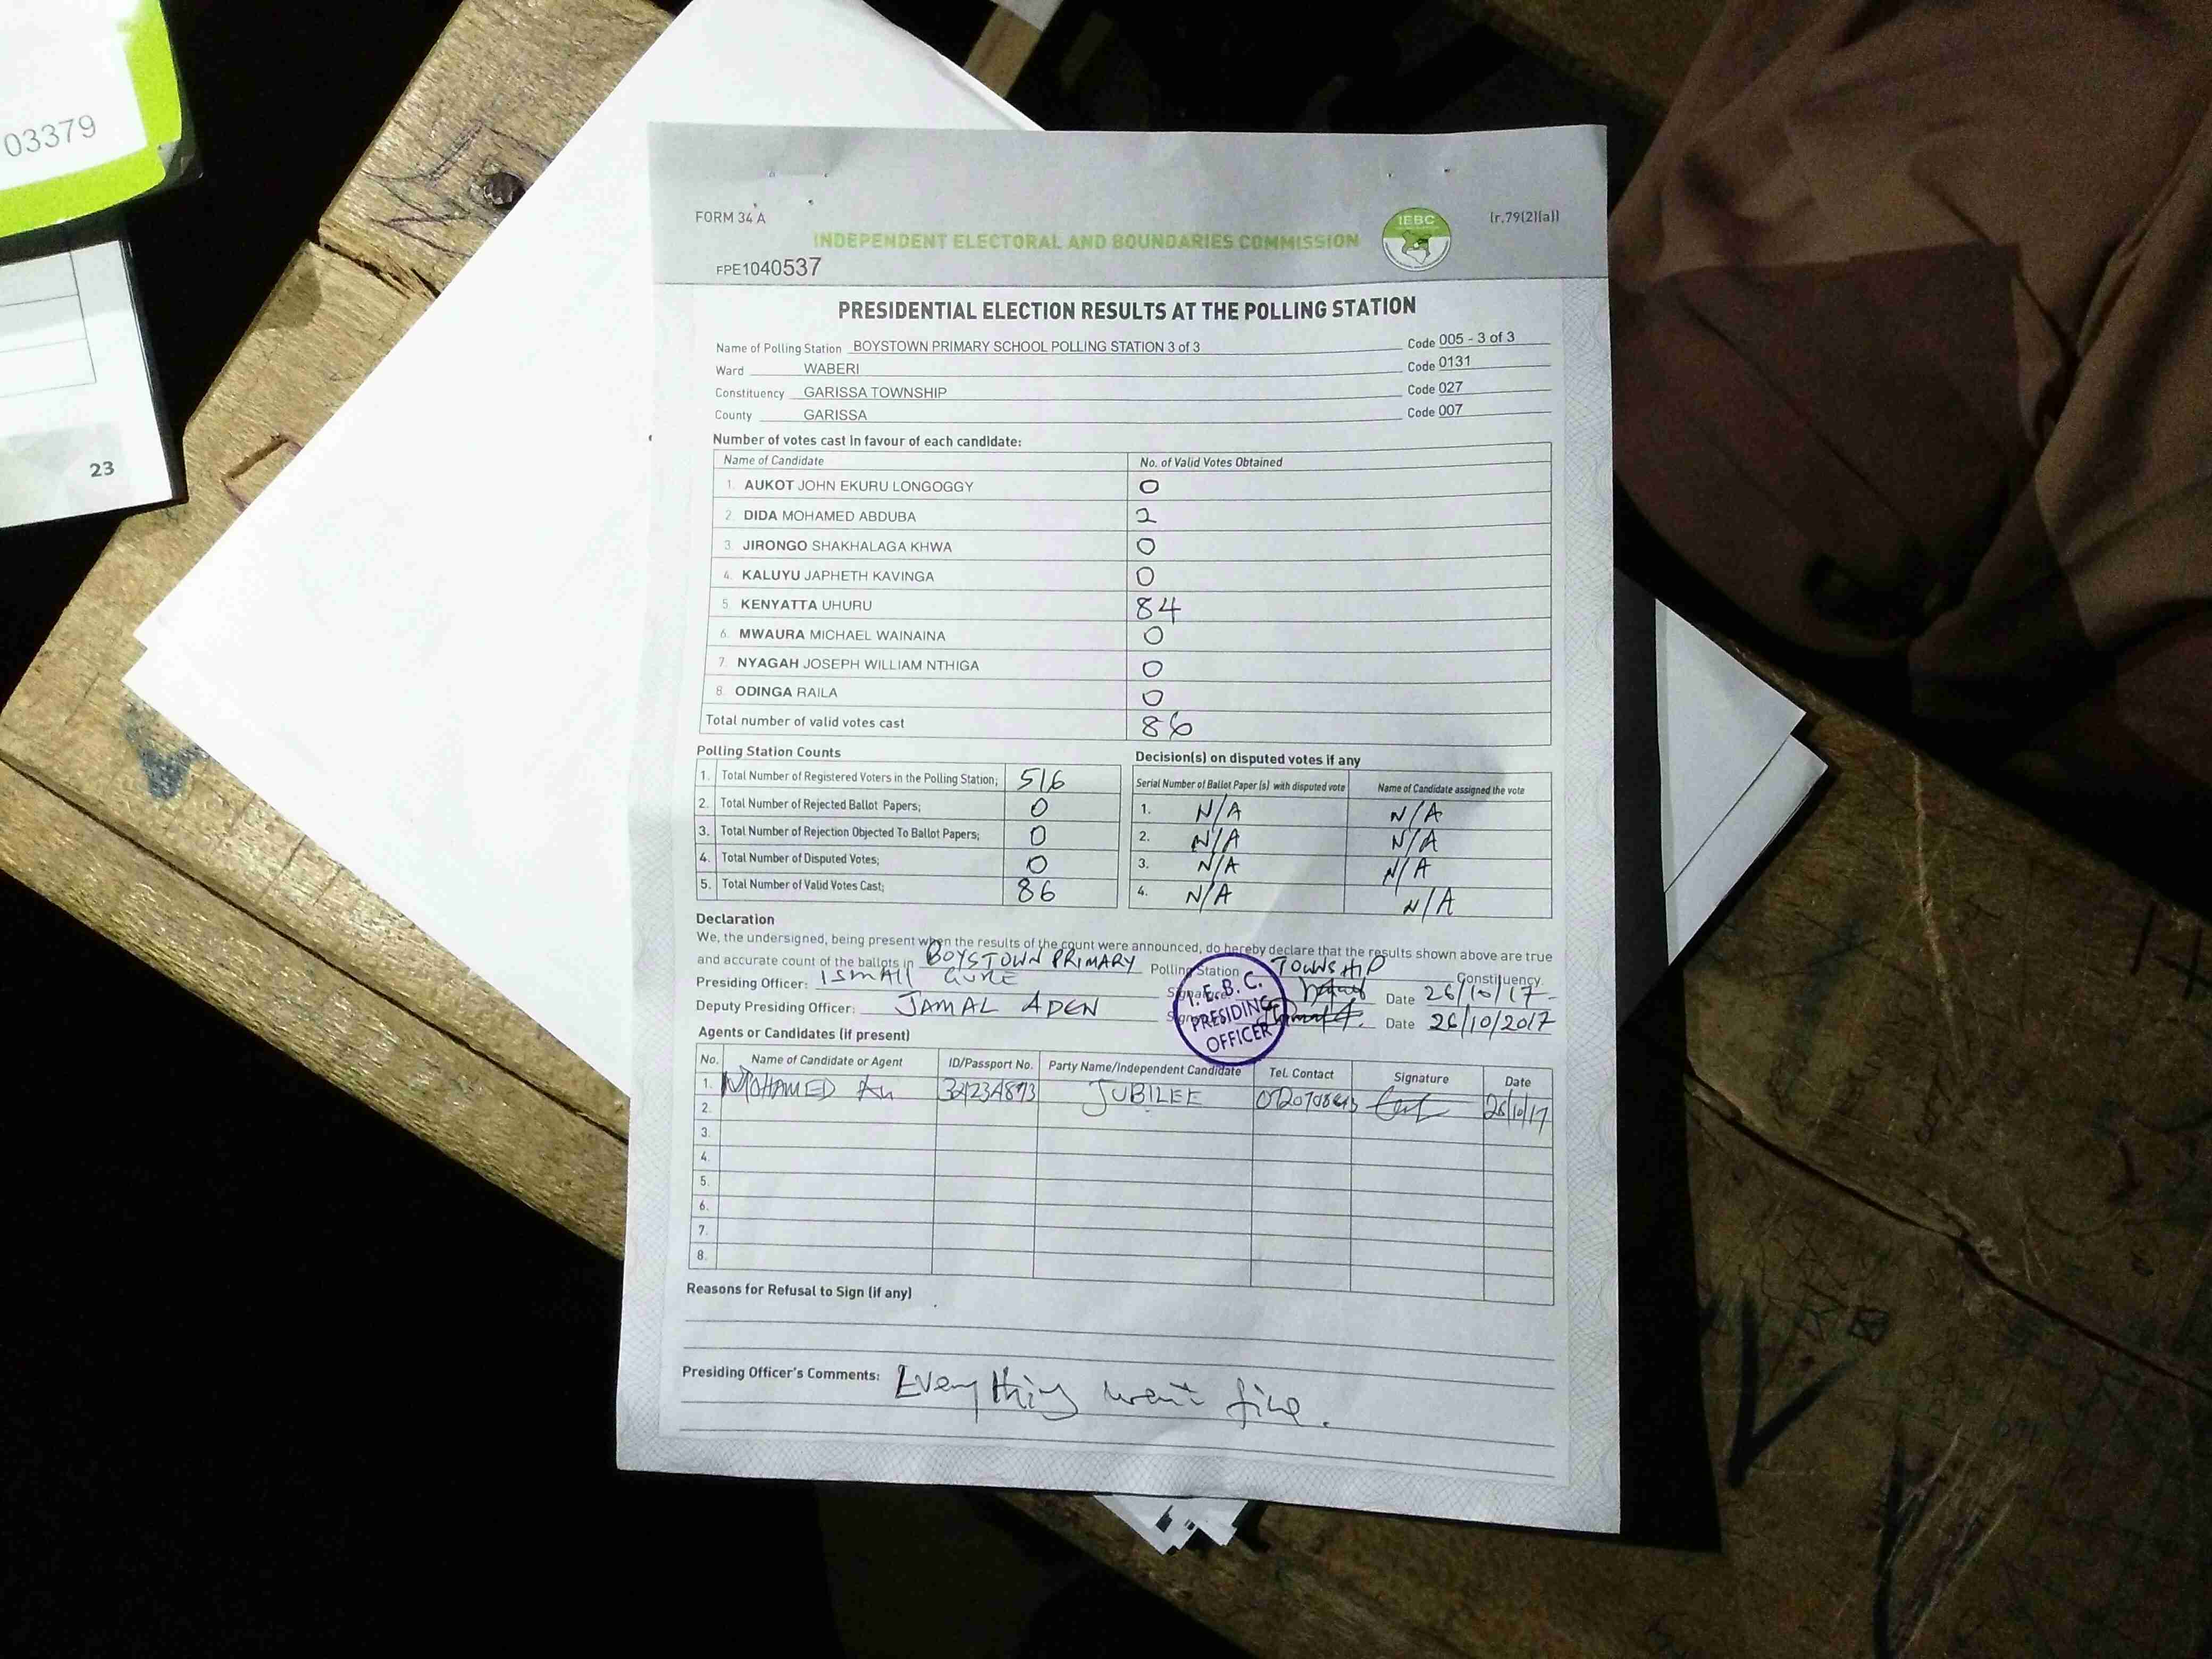 03379
23
FORM 34 A
(r.79(2)(a))
INDEPENDENT ELECTORAL AND BOUNDARIES COMMISSION
IEBC
FPE1040537
PRESIDENTIAL ELECTION RESULTS AT THE POLLING STATION
Name of Polling Station BOYSTOWN PRIMARY SCHOOL POLLING STATION 3 of 3 Code 005 - 3 of 3
Ward WABERI Code 0131
Constituency GARISSA TOWNSHIP Code 027
County GARISSA Code 007
Number of votes cast in favour of each candidate:
Name of Candidate No. of Valid Votes Obtained
1. AUKOT JOHN EKURU LONGOGGY 0
2. DIDA MOHAMED ABDUBA 2
3. JIRONGO SHAKHALAGA KHWA 0
4. KALUYU JAPHETH KAVINGA 0
5. KENYATTA UHURU 84
6. MWAURA MICHAEL WAINAINA 0
7. NYAGAH JOSEPH WILLIAM NTHIGA 0
8. ODINGA RAILA 0
Total number of valid votes cast 86
Polling Station Counts
1. Total Number of Registered Voters in the Polling Station; 516
2. Total Number of Rejected Ballot Papers; 0
3. Total Number of Rejection Objected To Ballot Papers; 0
4. Total Number of Disputed Votes; 0
5. Total Number of Valid Votes Cast; 86
Decision(s) on disputed votes if any
Serial Number of Ballot Paper (s) with disputed vote Name of Candidate assigned the vote
1. N/A N/A
2. N/A N/A
3. N/A N/A
4. N/A N/A
Declaration
We, the undersigned, being present when the results of the count were announced, do hereby declare that the results shown above are true
and accurate count of the ballots in BOYSTOWN PRIMARY Polling Station TOWNSHIP Constituency.
Presiding Officer: ISMAIL GURE Signature Date 26/10/17
Deputy Presiding Officer: JAMAL ADEN Date 26/10/2017
I.E.B.C.
PRESIDING
OFFICER
Agents or Candidates (if present)
No. Name of Candidate or Agent ID/Passport No. Party Name/Independent Candidate Tel. Contact Signature Date
1. MOHAMED JUBILEE 26/10/17
2.
3.
4.
5.
6.
7.
8.
Reasons for Refusal to Sign (if any)
Presiding Officer's Comments: Everything went fine.